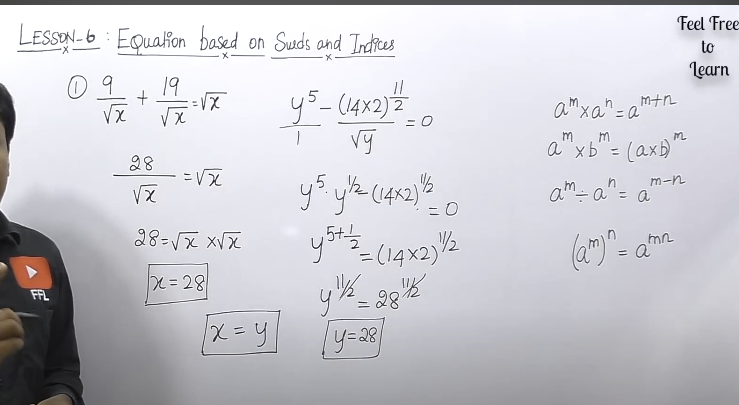 LESSON-6 : Equation based on Surds and Indices
Feel Free
to
Learn
① 9/√x + 19/√x = √x
28/√x = √x
28 = √x × √x
x = 28
x = y
y^5/1 - (14×2)^11/2/√y = 0
y^5 · y^1/2 - (14×2)^11/2 = 0
y^5+1/2 = (14×2)^11/2
y^11/2 = 28^11/2
y = 28
a^m × a^n = a^m+n
a^m × b^m = (a×b)^m
a^m ÷ a^n = a^m-n
(a^m)^n = a^mn
FFL